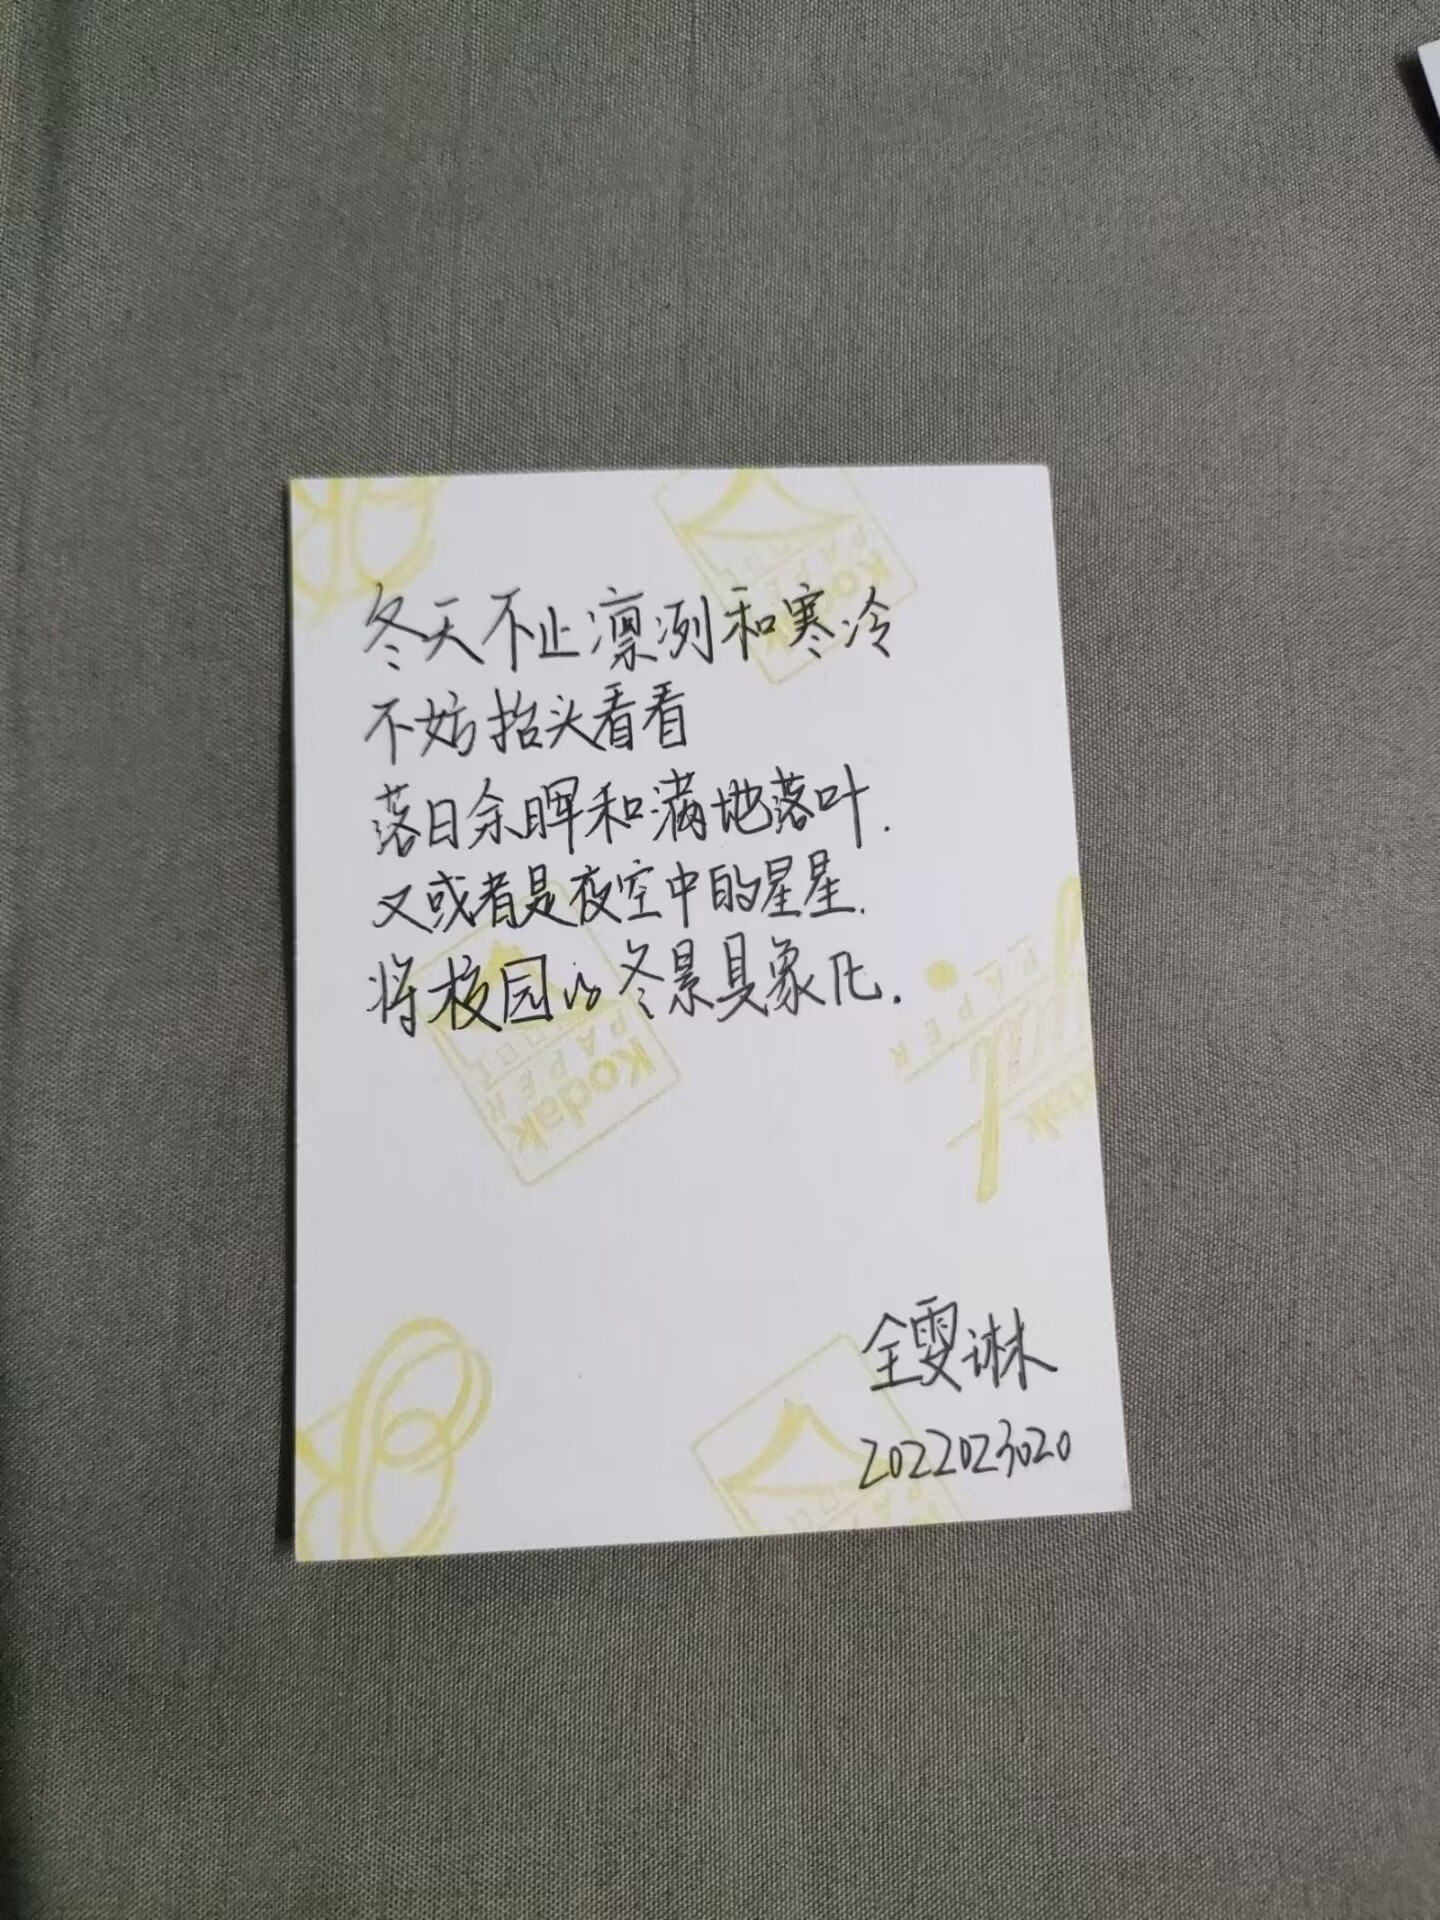 冬天不止凛冽和寒冷
不妨抬头看看
落日余晖和满地落叶.
又或者是夜空中的星星.
将校园的冬景具象化.
全雯淋
2022023020
Kodak
PAPER
Kodak
PAPER
Kodak
PAPER